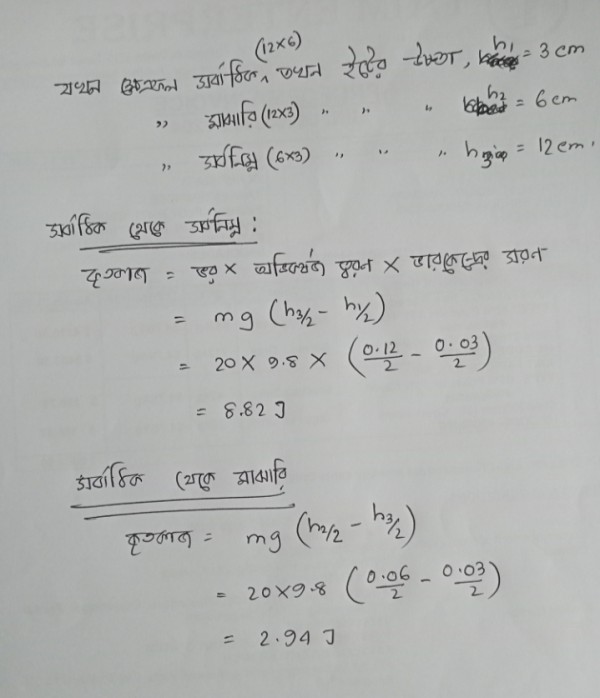 (12×6)
যখন ক্ষেত্রফল সর্বাধিক, তখন ইটের উচ্চতা, h₁ = 3 cm
" মাঝারি (12×3) " " " h₂ = 6 cm
" সর্বনিম্ন (6×3) " " " h₃ = 12 cm.
সর্বাধিক থেকে সর্বনিম্ন :
কৃতকাজ = ভর × অভিকর্ষজ ত্বরণ × ভারকেন্দ্রের সরণ
= mg (h₃/2 - h₁/2)
= 20 × 9.8 × (0.12/2 - 0.03/2)
= 8.82 J
সর্বাধিক থেকে মাঝারি
কৃতকাজ = mg (h₂/2 - h₃/2)
= 20×9.8 (0.06/2 - 0.03/2)
= 2.94 J